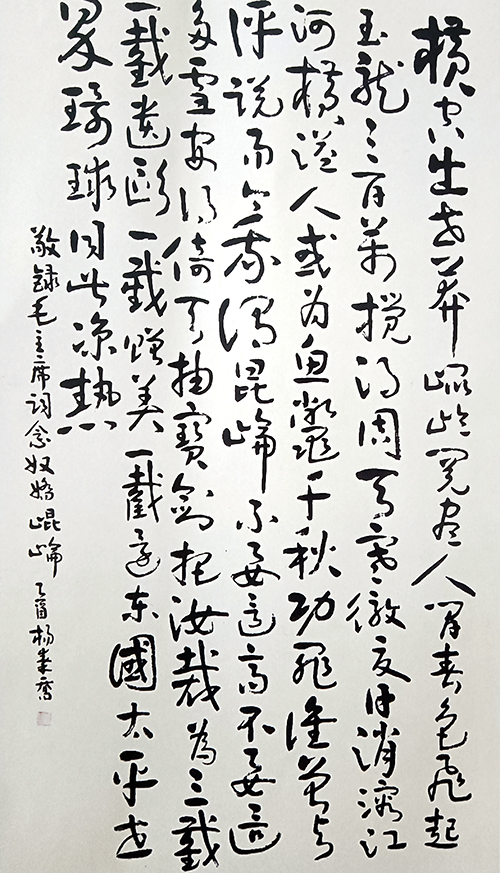 横空出世莽崐崘阅尽人間春色飛起
玉龙三百万搅得周天寒彻夏日消溶江
河横溢人或为鱼鳖千秋功罪谁曾与
评说而今我谓昆崘不要这高不要这
多雪安得倚天抽寶剑把汝裁為三截
一截遗欧一截赠美一截还东國太平世
界环球同此凉热
敬録毛主席词念奴娇崐崘 乙酉杨